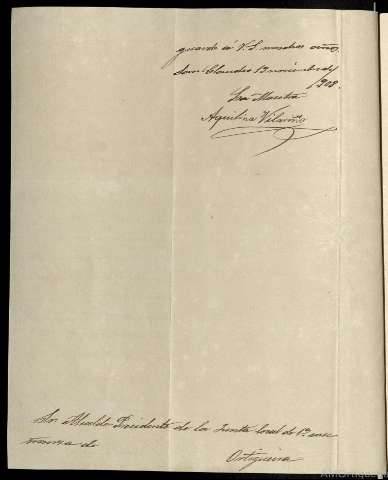 guarde á V. S. muchos años
San Claudio 13 noviembre de
1908.
La Maestra
Aquilina Vilariño
Sr. Alcalde Presidente de la Junta local de 1ª ense
nanza de
Ortigueira